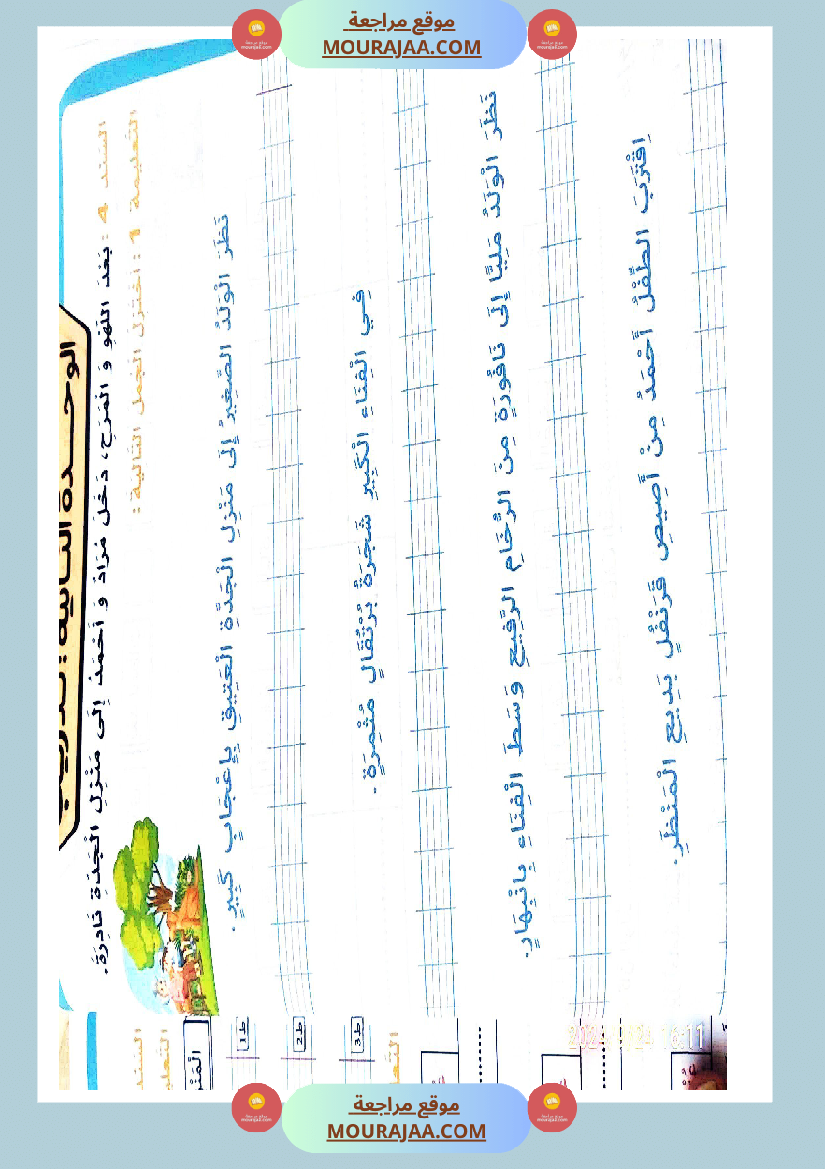 موقع مراجعة
MOURAJAA.COM
الوحدة الثانية :
السند 4 : بَعْدَ اللَّهْوِ وَ الْمَرَحِ، دَخَلَ مُرَادُ وَ أَحْمَدُ إِلَى مَنْزِلِ الْجَدَّةِ نَادِرَةَ.
التعليمة 1 : اختزل الجمل التالية :
نَظَرَ الْوَلَدُ الصَّغِيرُ إِلَى مَنْزِلِ الْجَدَّةِ الْعَتِيقِ بِإِعْجَابٍ كَبِيرٍ.
فِي الْفِنَاءِ الْكَبِيرِ شَجَرَةُ بُرْتُقَالٍ مُثْمِرَةٍ.
نَظَرَ الْوَلَدُ مَلِيًّا إِلَى نَافُورَةٍ مِنَ الرُّخَامِ الرَّفِيعِ وَسَطَ الْفِنَاءِ بِانْبِهَارٍ.
اِقْتَرَبَ الطِّفْلُ أَحْمَدُ مِنْ أَصِيصِ قَرَنْفُلٍ بَدِيعِ الْمَنْظَرِ.
موقع مراجعة
MOURAJAA.COM